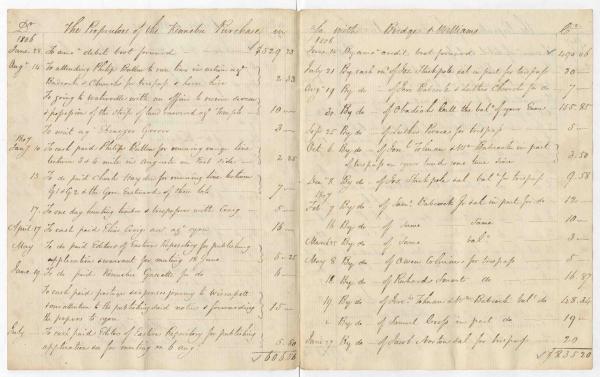 Dr The Proprietors of the Kennebec Purchase in
1806
June 28 To amt debit bot forward $529 23
Augt 14 To attending Philip Bullen to run line in certain agt
Babcock & Church for trespass & horse hire 2.33
To going to waterville with an officer to receive seisin
& possession of the strip of land recovered agt Temple 10 —
To writ agt Ebenezer Grover 3 —
1807
Jany 10 To cash paid Philip Bullen for running range line
between 3 & 4 mile in Augusta on East side 2 25
13 To do paid Charles Hayden for running line between
G1 & G2 & the Gore Eastward of those lots 7 —
17 To one day hunting trespassers with Craig
April 17 To cash paid Elias Craig agt you 16 —
May To do paid Editors of Eastern Repository for publishing
application & warrant for meeting 18 June 6 25
June 19 To do paid Kennebec Gazette for do 6 —
To cash paid postage expenses going to Wiscassett
& on attention to the publishing said notice & forwarding
the papers to you 15 —
July To cash paid Editor of Eastern Repository for publishing
application &c for meeting on 6 aug 5.50
$606.56
to with Bridge & Williams Cr
1806
June 12 By amt credit bot forward $490 66
July 21 By cash in of Jos. Stackpole sal in part for trespass 20 —
Augt 19 By do of Jere Babcock & Luther Church for do 7 —
30 By do of Obadiah Hall the bale of your Exon 155.85
Sept 25 By do of Luther Pierce for trespass 5 —
Oct 6 By do of Jere Tolman & Wm Babcock in part
of trespass on your land one time since 3.50
Dec 8 By do of Jos. Stackpole sal bale for trespass 9.58
1807
Feb 7 By do of Saml Babcock Jr sal in part for do 12 —
16 By do of Same Same 10 —
March By do of Same bale 3 —
May 8 By do of Owen for trespass 5 —
By do of Richard do 16 87
19 By do of Jere Tolman & Wm Babcock bale do 48.34
By do of Samuel Cross in part do 19 —
June 29 By do of Jacob Norton sal for trespass 20
$835 20